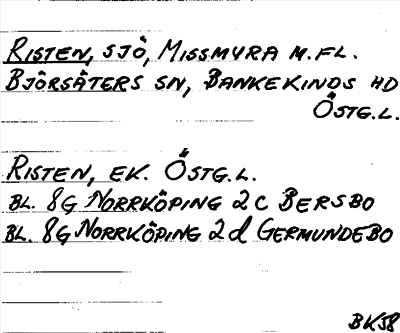 RISTEN, SJÖ, MISSMYRA M.FL.
BJÖRSÄTERS SN, BANKEKINDS HD
ÖSTG.L.
RISTEN, EK. ÖSTG.L.
BL. 8G NORRKÖPING 2C BERSBO
BL. 8G NORRKÖPING 2d GERMUNDEBO
BK58